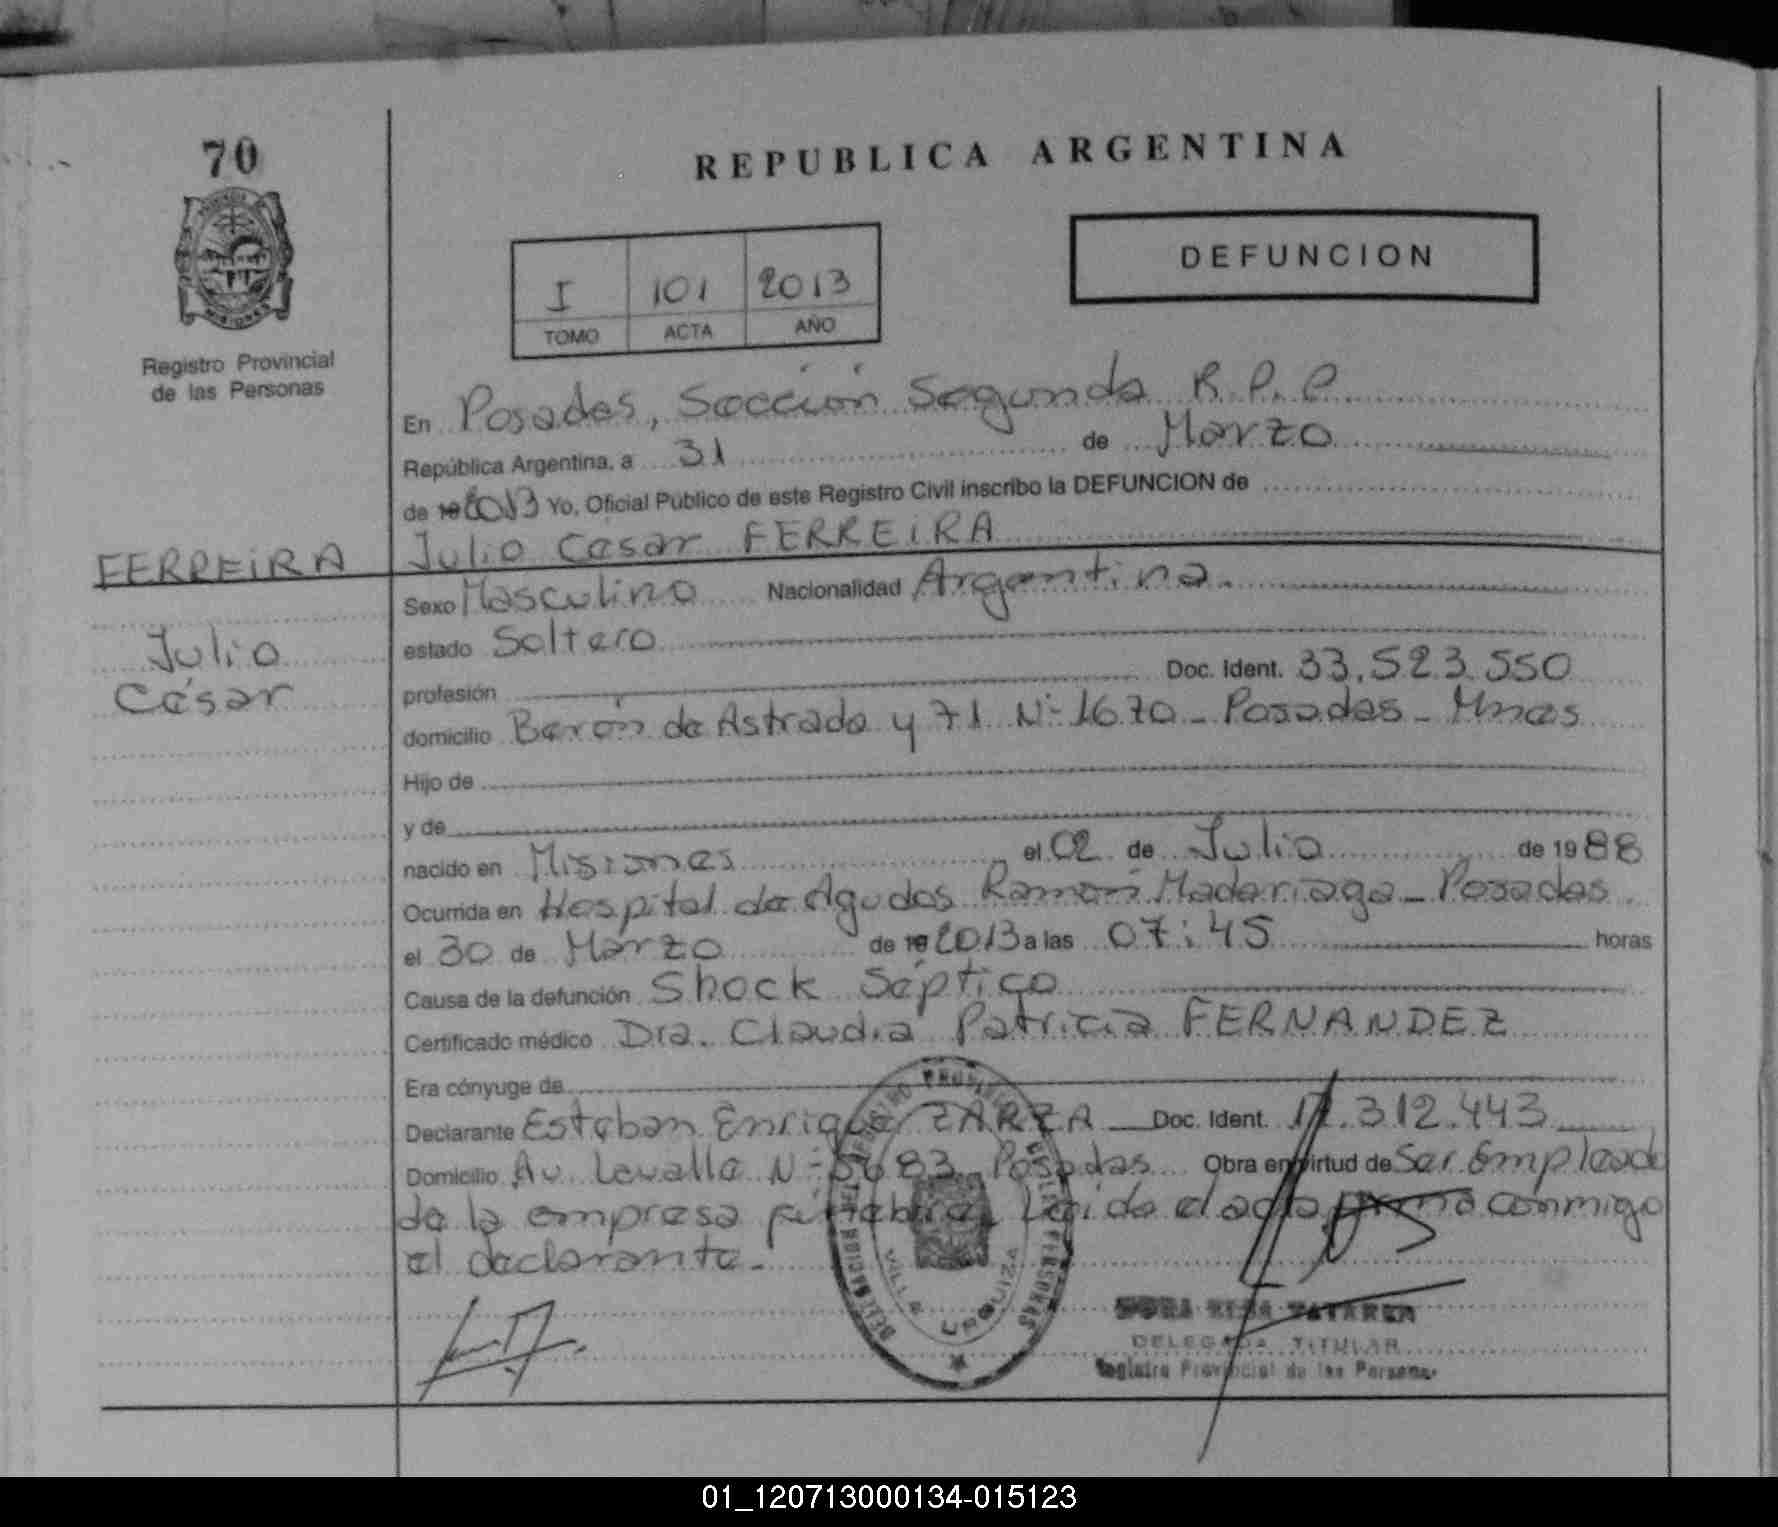 70
REPUBLICA ARGENTINA
DEFUNCION
I 101 2013
TOMO ACTA AÑO
MISIONES
Registro Provincial
de las Personas
En Posadas, Sección Segunda R.P.P.
República Argentina, a 31 de Marzo
de 19 2013 Yo, Oficial Público de este Registro Civil inscribo la DEFUNCION de
FERREIRA Julio César FERREIRA
Sexo Masculino Nacionalidad Argentina.
Julio
César
estado Soltero
profesión Doc. Ident. 33.523.550
domicilio Berón de Astrada y 71 Nº 1670 - Posadas - Mnes
Hijo de
y de
nacido en Misiones el 02 de Julio de 1988
Ocurrida en Hospital de Agudos Ramón Madariaga - Posadas
el 30 de Marzo de 19 2013 a las 07:45 horas
Causa de la defunción Shock Séptico
Certificado médico Dra. Claudia Patricia FERNANDEZ
Era cónyuge de
Declarante Esteban Enrique ZARZA Doc. Ident. 17.312.443
Domicilio Av. Lavalle Nº 5683 Posadas Obra en virtud de Ser Empleado
de la empresa fúnebre. Leída el acta firma conmigo
el declarante.-
VILLA URQUIZA
DELEGADA TITULAR
Registro Provincial de las Personas
01_120713000134-015123